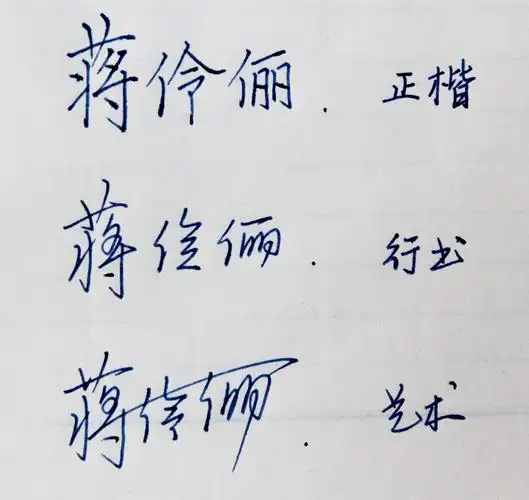 蒋伶俪. 正楷
蒋伶俪. 行书
蒋伶俪. 艺术